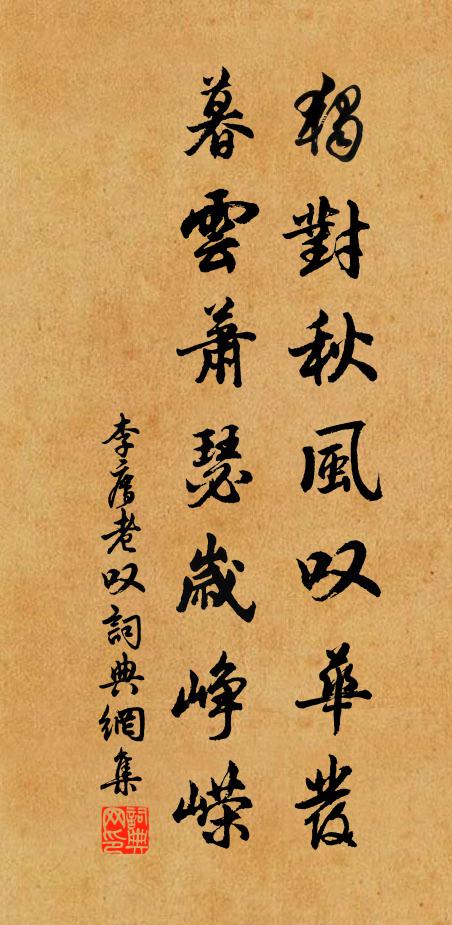 獨對秋風叹華發
暮雲蕭瑟歲崢嶸
李老叹詞典網集
詞典
网印